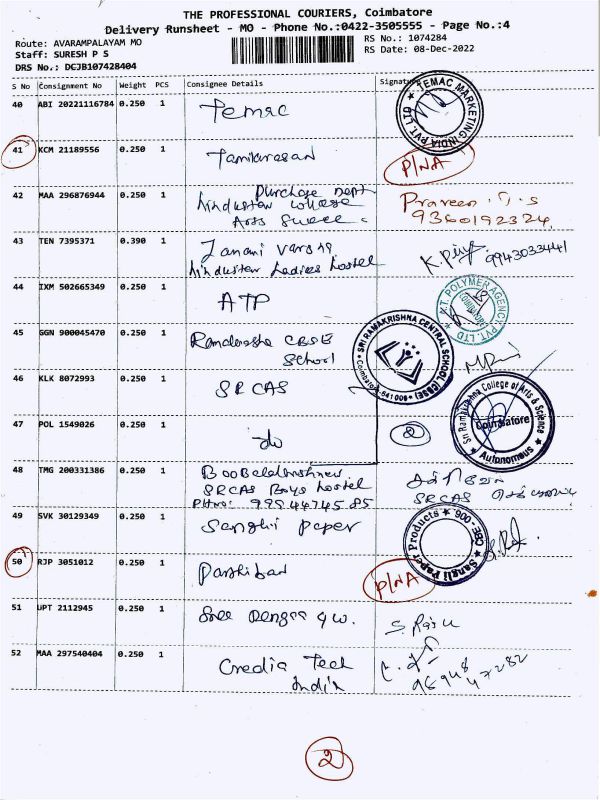 THE PROFESSIONAL COURIERS, Coimbatore
Delivery Runsheet - MO - Phone No.:0422-3505555 - Page No.:4
Route: AVARAMPALAYAM MO
RS No.: 1074284
Staff: SURESH P S
RS Date: 08-Dec-2022
DRS No.: DCJB107428404
S No Consignment No Weight PCS Consignee Details Signature
40 ABI 20221116784 0.250 1 Temac
TEMAC MARKETING INDIA PVT. LTD
41 KCM 21189556 0.250 1 Tamilarasan P/NA
42 MAA 296876944 0.250 1 Purchase Dept
hindustan college
Arts
Praveen T.S
9360192324
43 TEN 7395371 0.390 1 Janani Varsha
hindustan Ladies hostel
9943033441
44 IXM 502665349 0.250 1 ATP
K.T. POLYMER AGENCY PVT. LTD
COIMBATORE
45 GGN 900045470 0.250 1 CBSE
School
SRI RAMAKRISHNA CENTRAL SCHOOL (CBSE)
Coimbatore-641 006
46 KLK 8072993 0.250 1 SRCAS
Sri Ramakrishna College of Arts & Science
Coimbatore
Autonomous
47 POL 1549026 0.250 1 do 2
48 TMG 200331386 0.250 1
SRCAS Boys hostel
9994474585
SRCAS
49 SVK 30129349 0.250 1 Sanghi Paper
Sangli Paper Products
CBE-006
50 RJP 3051012 0.250 1 Parthiban P/NA
51 UPT 2112945 0.250 1 Sree
S. Raju
52 MAA 297540404 0.250 1 Credia Tech
India
2